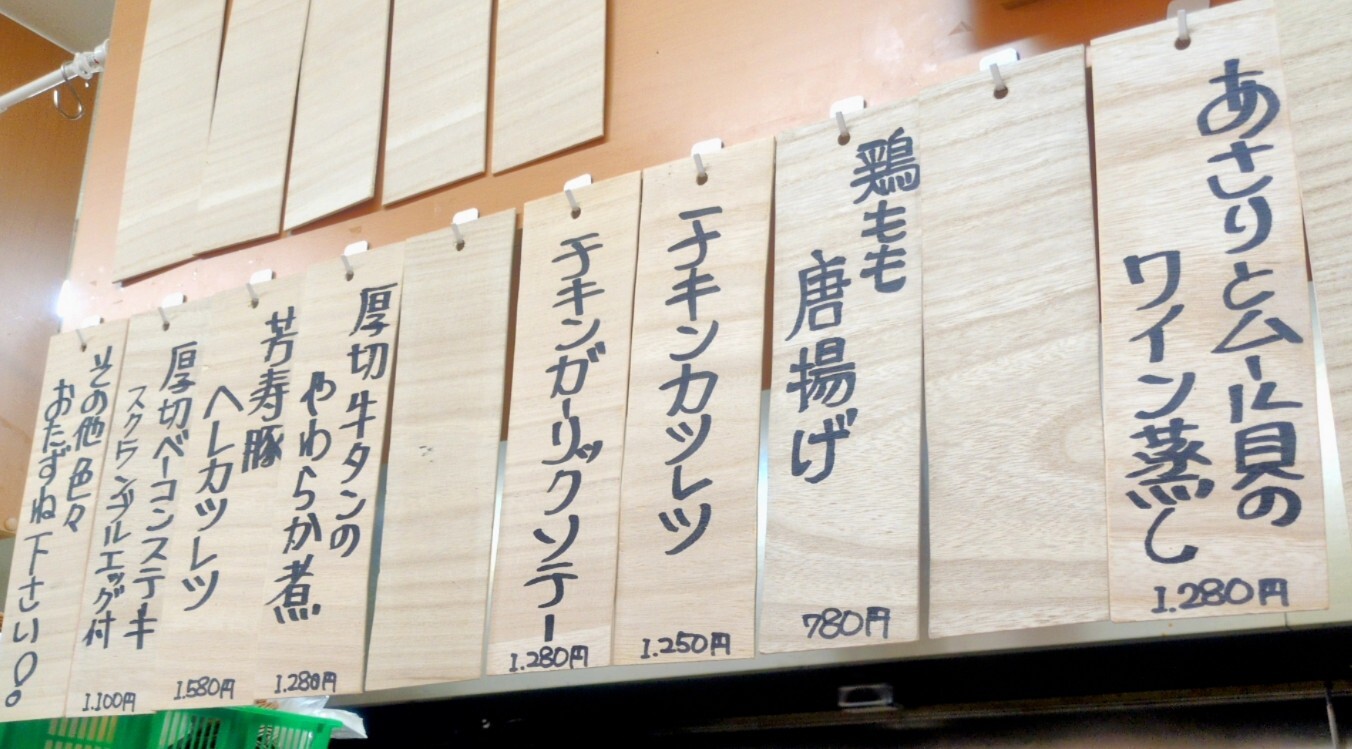 あさりとムール貝の
ワイン蒸し
1.280円
鶏もも
唐揚げ
780円
チキンカツレツ
1.250円
チキンガーリックソテー
1.280円
厚切牛タンの
やわらか煮
1.280円
芳寿豚
ヘレカツレツ
1.580円
厚切ベーコンステーキ
スクランブルエッグ付
1.100円
その他色々
おたずね下さい!。